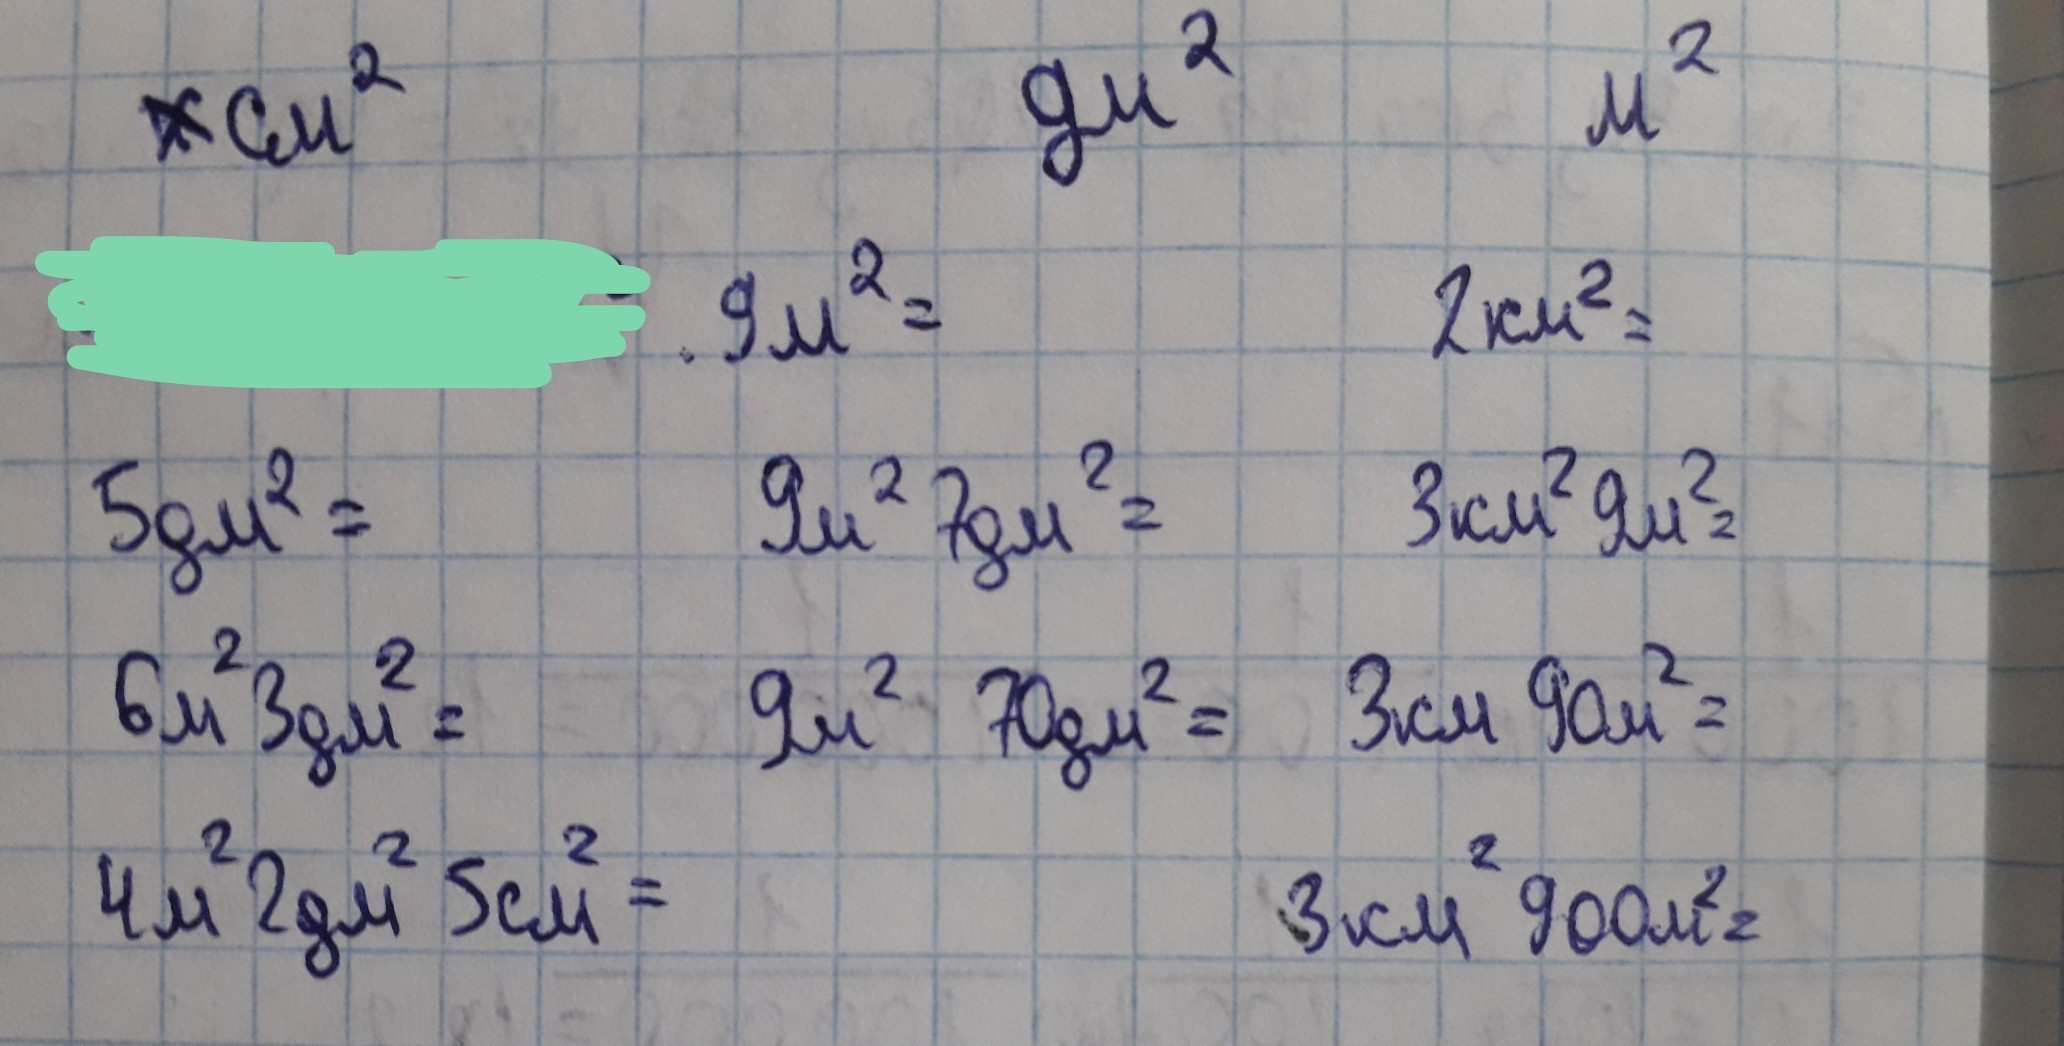 см² дм² м²
9м²= 2км²=
5дм²= 9м² 7дм²= 3км² 9м²=
6м² 3дм²= 9м² 70дм²= 3км 90м²=
4м² 2дм² 5см²= 3км² 900м²=